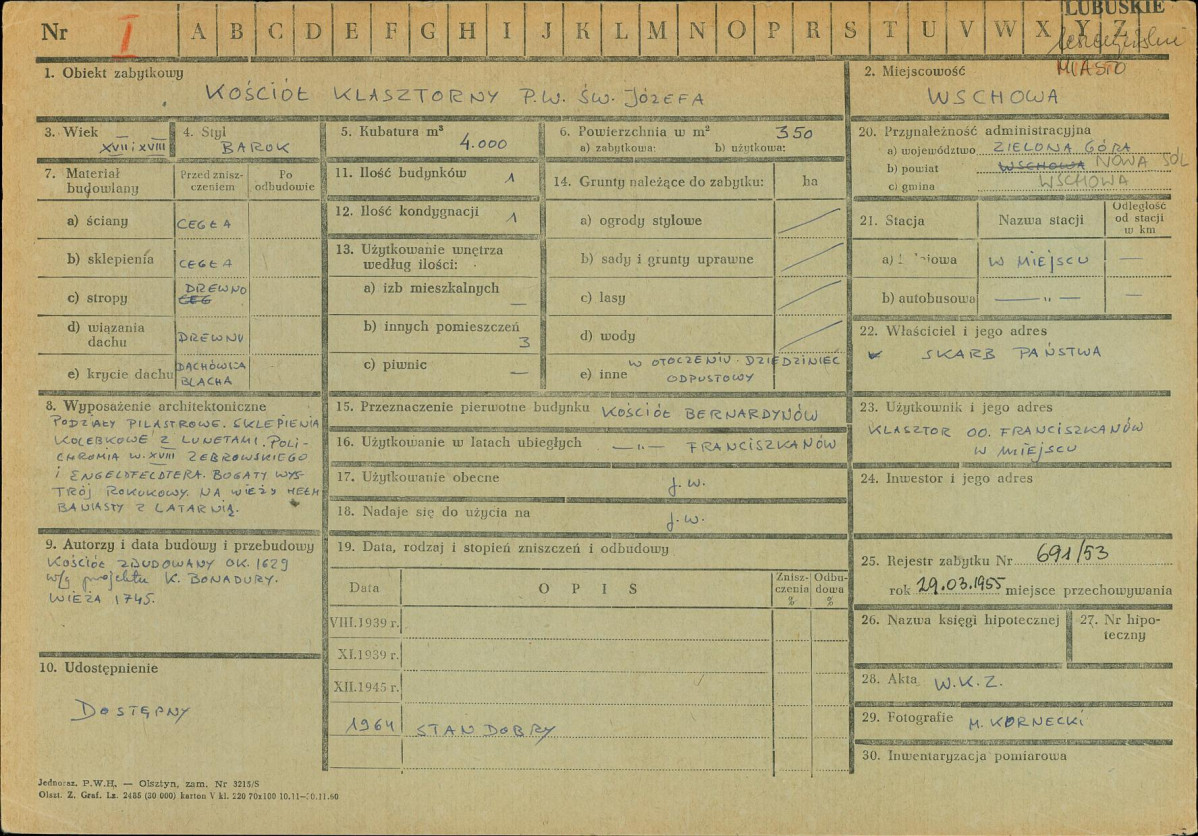 LUBUSKIE
Nr I A B C D E F G H I J K L M N O P R S T U V W X Y Z
MIASTO
1. Obiekt zabytkowy
KOŚCIÓŁ KLASZTORNY P.W. ŚW. JÓZEFA
2. Miejscowość
WSCHOWA
3. Wiek
XVII i XVIII
4. Styl
BAROK
5. Kubatura m³
4.000
6. Powierzchnia w m² 350
a) zabytkowa: b) użytkowa:
20. Przynależność administracyjna
a) województwo ZIELONA GÓRA
b) powiat WSCHOWA NOWA SÓL
c) gmina WSCHOWA
7. Materiał budowlany
Przed zniszczeniem
Po odbudowie
a) ściany CEGŁA
b) sklepienia CEGŁA
c) stropy DREWNO
CEG
d) wiązania dachu DREWNO
e) krycie dachu DACHÓWKA
BLACHA
11. Ilość budynków 1
12. Ilość kondygnacji 1
13. Użytkowanie wnętrza
według ilości:
a) izb mieszkalnych —
b) innych pomieszczeń
3
c) piwnic —
14. Grunty należące do zabytku: ha
a) ogrody stylowe
b) sady i grunty uprawne
c) lasy
d) wody
W OTOCZENIU DZIEDZINIEC
e) inne ODPUSTOWY
21. Stacja
Nazwa stacji
Odległość
od stacji
w km
a) W MIEJSCU —
b) autobusowa — „ — —
22. Właściciel i jego adres
SKARB PAŃSTWA
8. Wyposażenie architektoniczne
PODZIAŁY PILASTROWE. SKLEPIENIA
KOLEBKOWE Z LUNETAMI. POLI-
CHROMIA W. XVIII ŻEBROWSKIEGO
I ENGELDFELDTERA. BOGATY WYS-
TRÓJ ROKOKOWY. NA WIEŻY HEŁM
BANIASTY Z LATARNIĄ.
15. Przeznaczenie pierwotne budynku KOŚCIÓŁ BERNARDYNÓW
16. Użytkowanie w latach ubiegłych — „ — FRANCISZKANÓW
17. Użytkowanie obecne j.w.
18. Nadaje się do użycia na j.w.
23. Użytkownik i jego adres
KLASZTOR OO. FRANCISZKANÓW
W MIEJSCU
24. Inwestor i jego adres
9. Autorzy i data budowy i przebudowy
KOŚCIÓŁ ZBUDOWANY OK. 1629
w/g projektu K. BONADURY.
WIEŻA 1745.
19. Data, rodzaj i stopień zniszczeń i odbudowy
Data
O P I S
Zniszczenia
%
Odbudowa
%
VIII.1939 r.
XI.1939 r.
XII.1945 r.
1964 STAN DOBRY
25. Rejestr zabytku Nr 691/53
rok 29.03.1955 miejsce przechowywania
26. Nazwa księgi hipotecznej
27. Nr hipo-
teczny
10. Udostępnienie
DOSTĘPNY
28. Akta W.K.Z.
29. Fotografie M. KORNECKI
30. Inwentaryzacja pomiarowa
Jednoraz. P.W.H. — Olsztyn, zam. Nr 3215/S
Olszt. Z. Graf. Lz. 2485 (30 000) karton V kl. 220 70x100 10.11—30.11.60